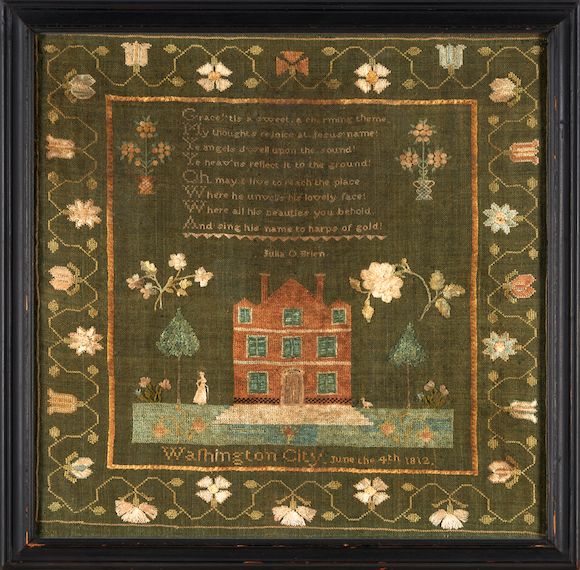 Grace! 'tis a sweet, a charming theme,
My thoughts rejoice at Jesus' name!
Ye angels dwell upon the sound!
Ye heav'ns reflect it to the ground!
Oh may I live to reach the place
Where he unveils his lovely face!
Where all his beauties you behold,
And sing his name to harps of gold!
Julia O. Brien
Waſhington City, June the 4th 1812.